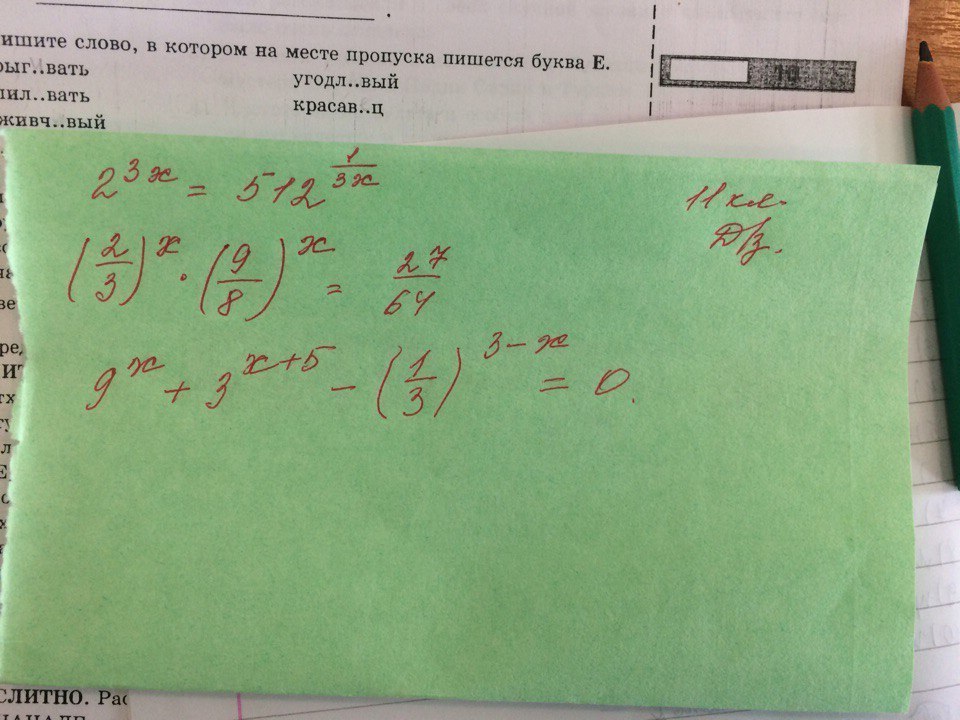 ишите слово, в котором на месте пропуска пишется буква Е.
рыг..вать
угодл..вый
пил..вать
красав..ц
живч..вый
2^{3x} = 512^{\frac{1}{3x}}
11 кл.
Д/з.
(\frac{2}{3})^x · (\frac{9}{8})^x = \frac{27}{64}
9^x + 3^{x+5} - (\frac{1}{3})^{3-x} = 0.
СЛИТНО. Рас